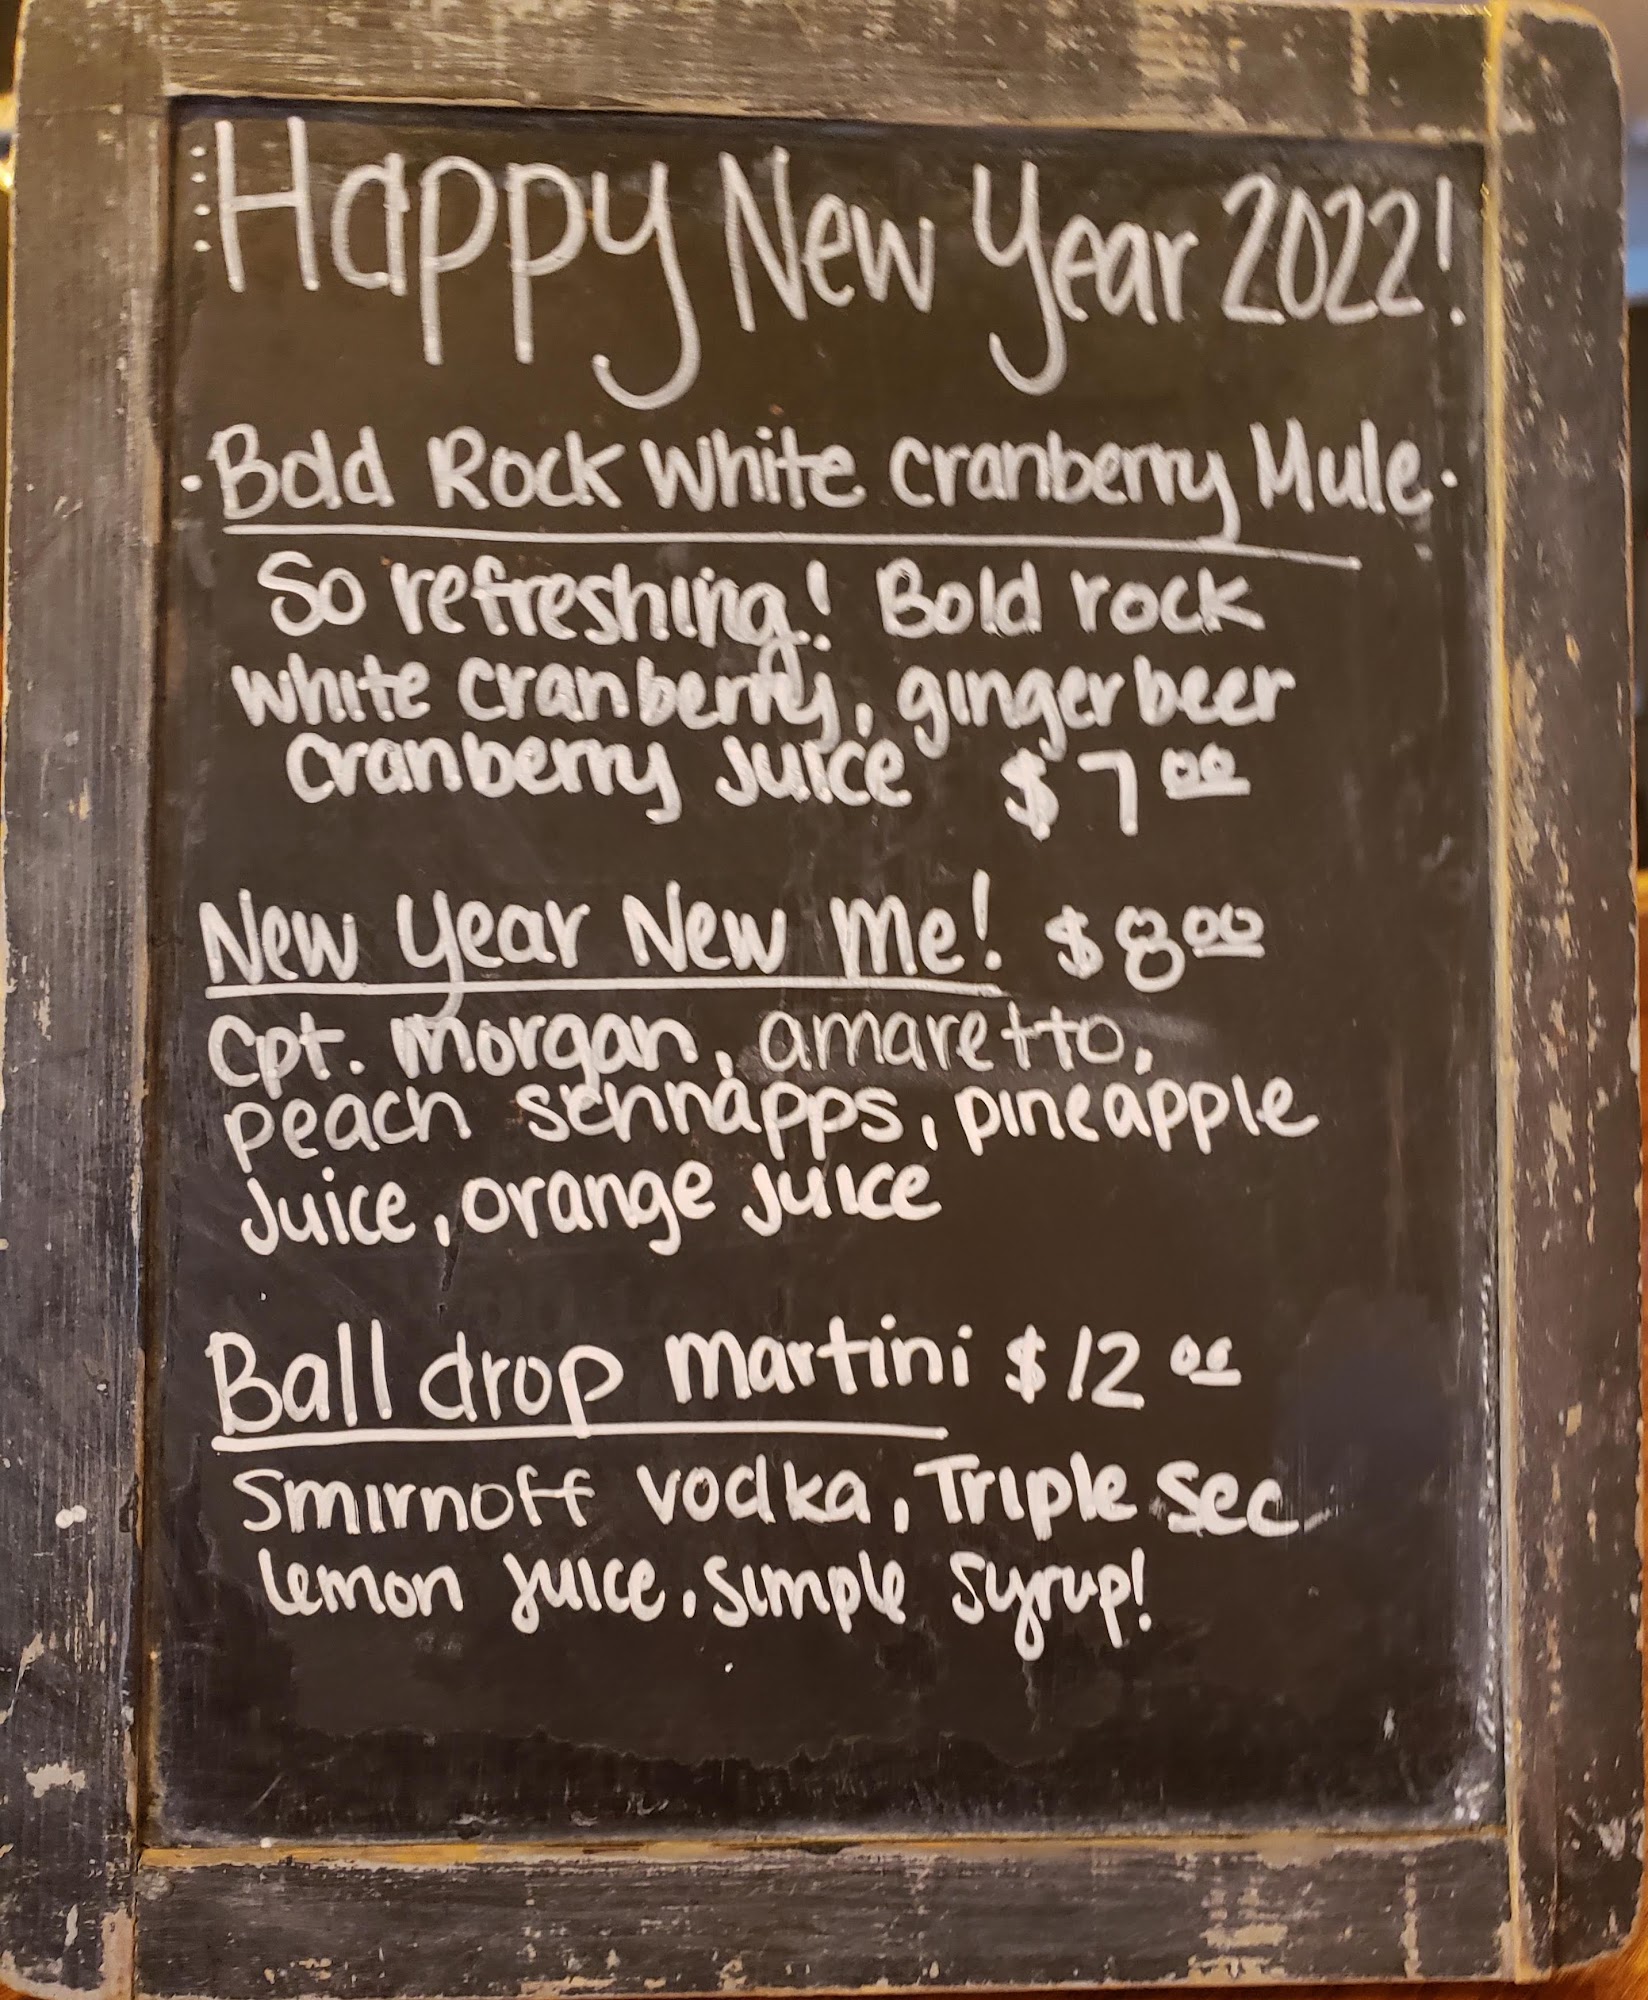 Happy New Year 2022!
· Bold Rock White Cranberry Mule ·
So refreshing! Bold rock
white cranberry, ginger beer
cranberry juice $7.00
New Year New Me! $8.00
Cpt. Morgan, amaretto,
peach schnapps, pineapple
Juice, orange juice
Ball drop martini $12.00
Smirnoff vodka, Triple sec
lemon juice, simple syrup!